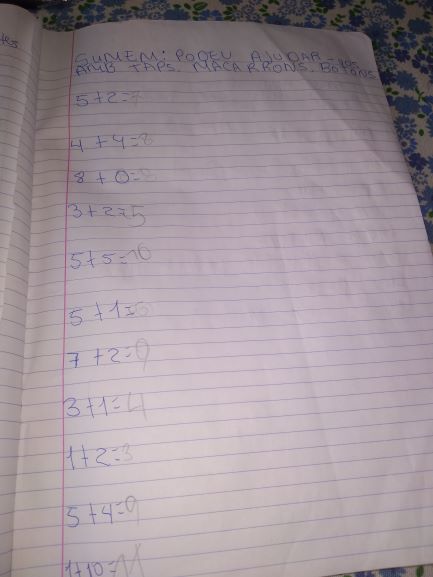 SUMEM: PODEU AJUDAR-VOS
AMB TAPS. MACARRONS. BOTONS
5+2=7
4+4=8
8+0=8
3+2=5
5+5=10
5+1=6
7+2=9
3+1=4
1+2=3
5+4=9
1+10=11